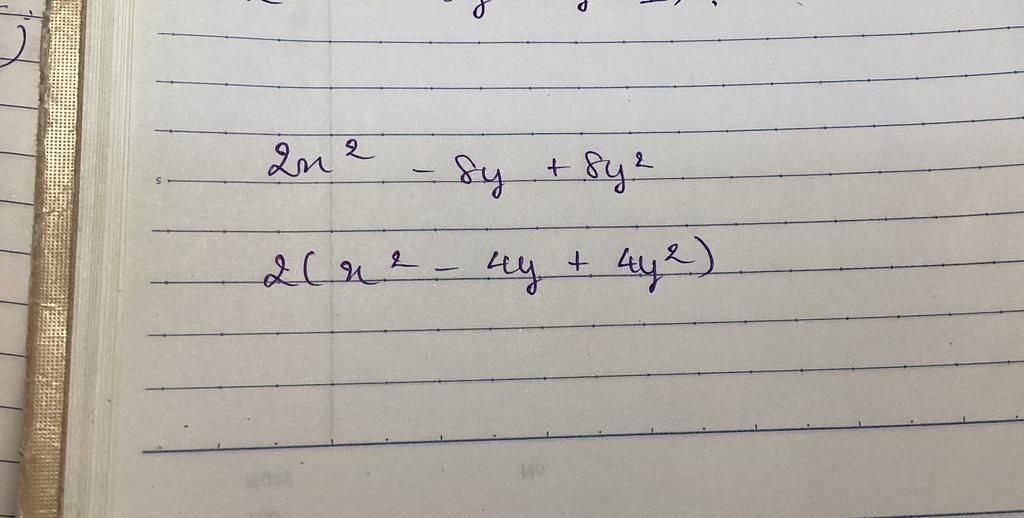 2x² - 8y + 8y²
2(x² - 4y + 4y²)